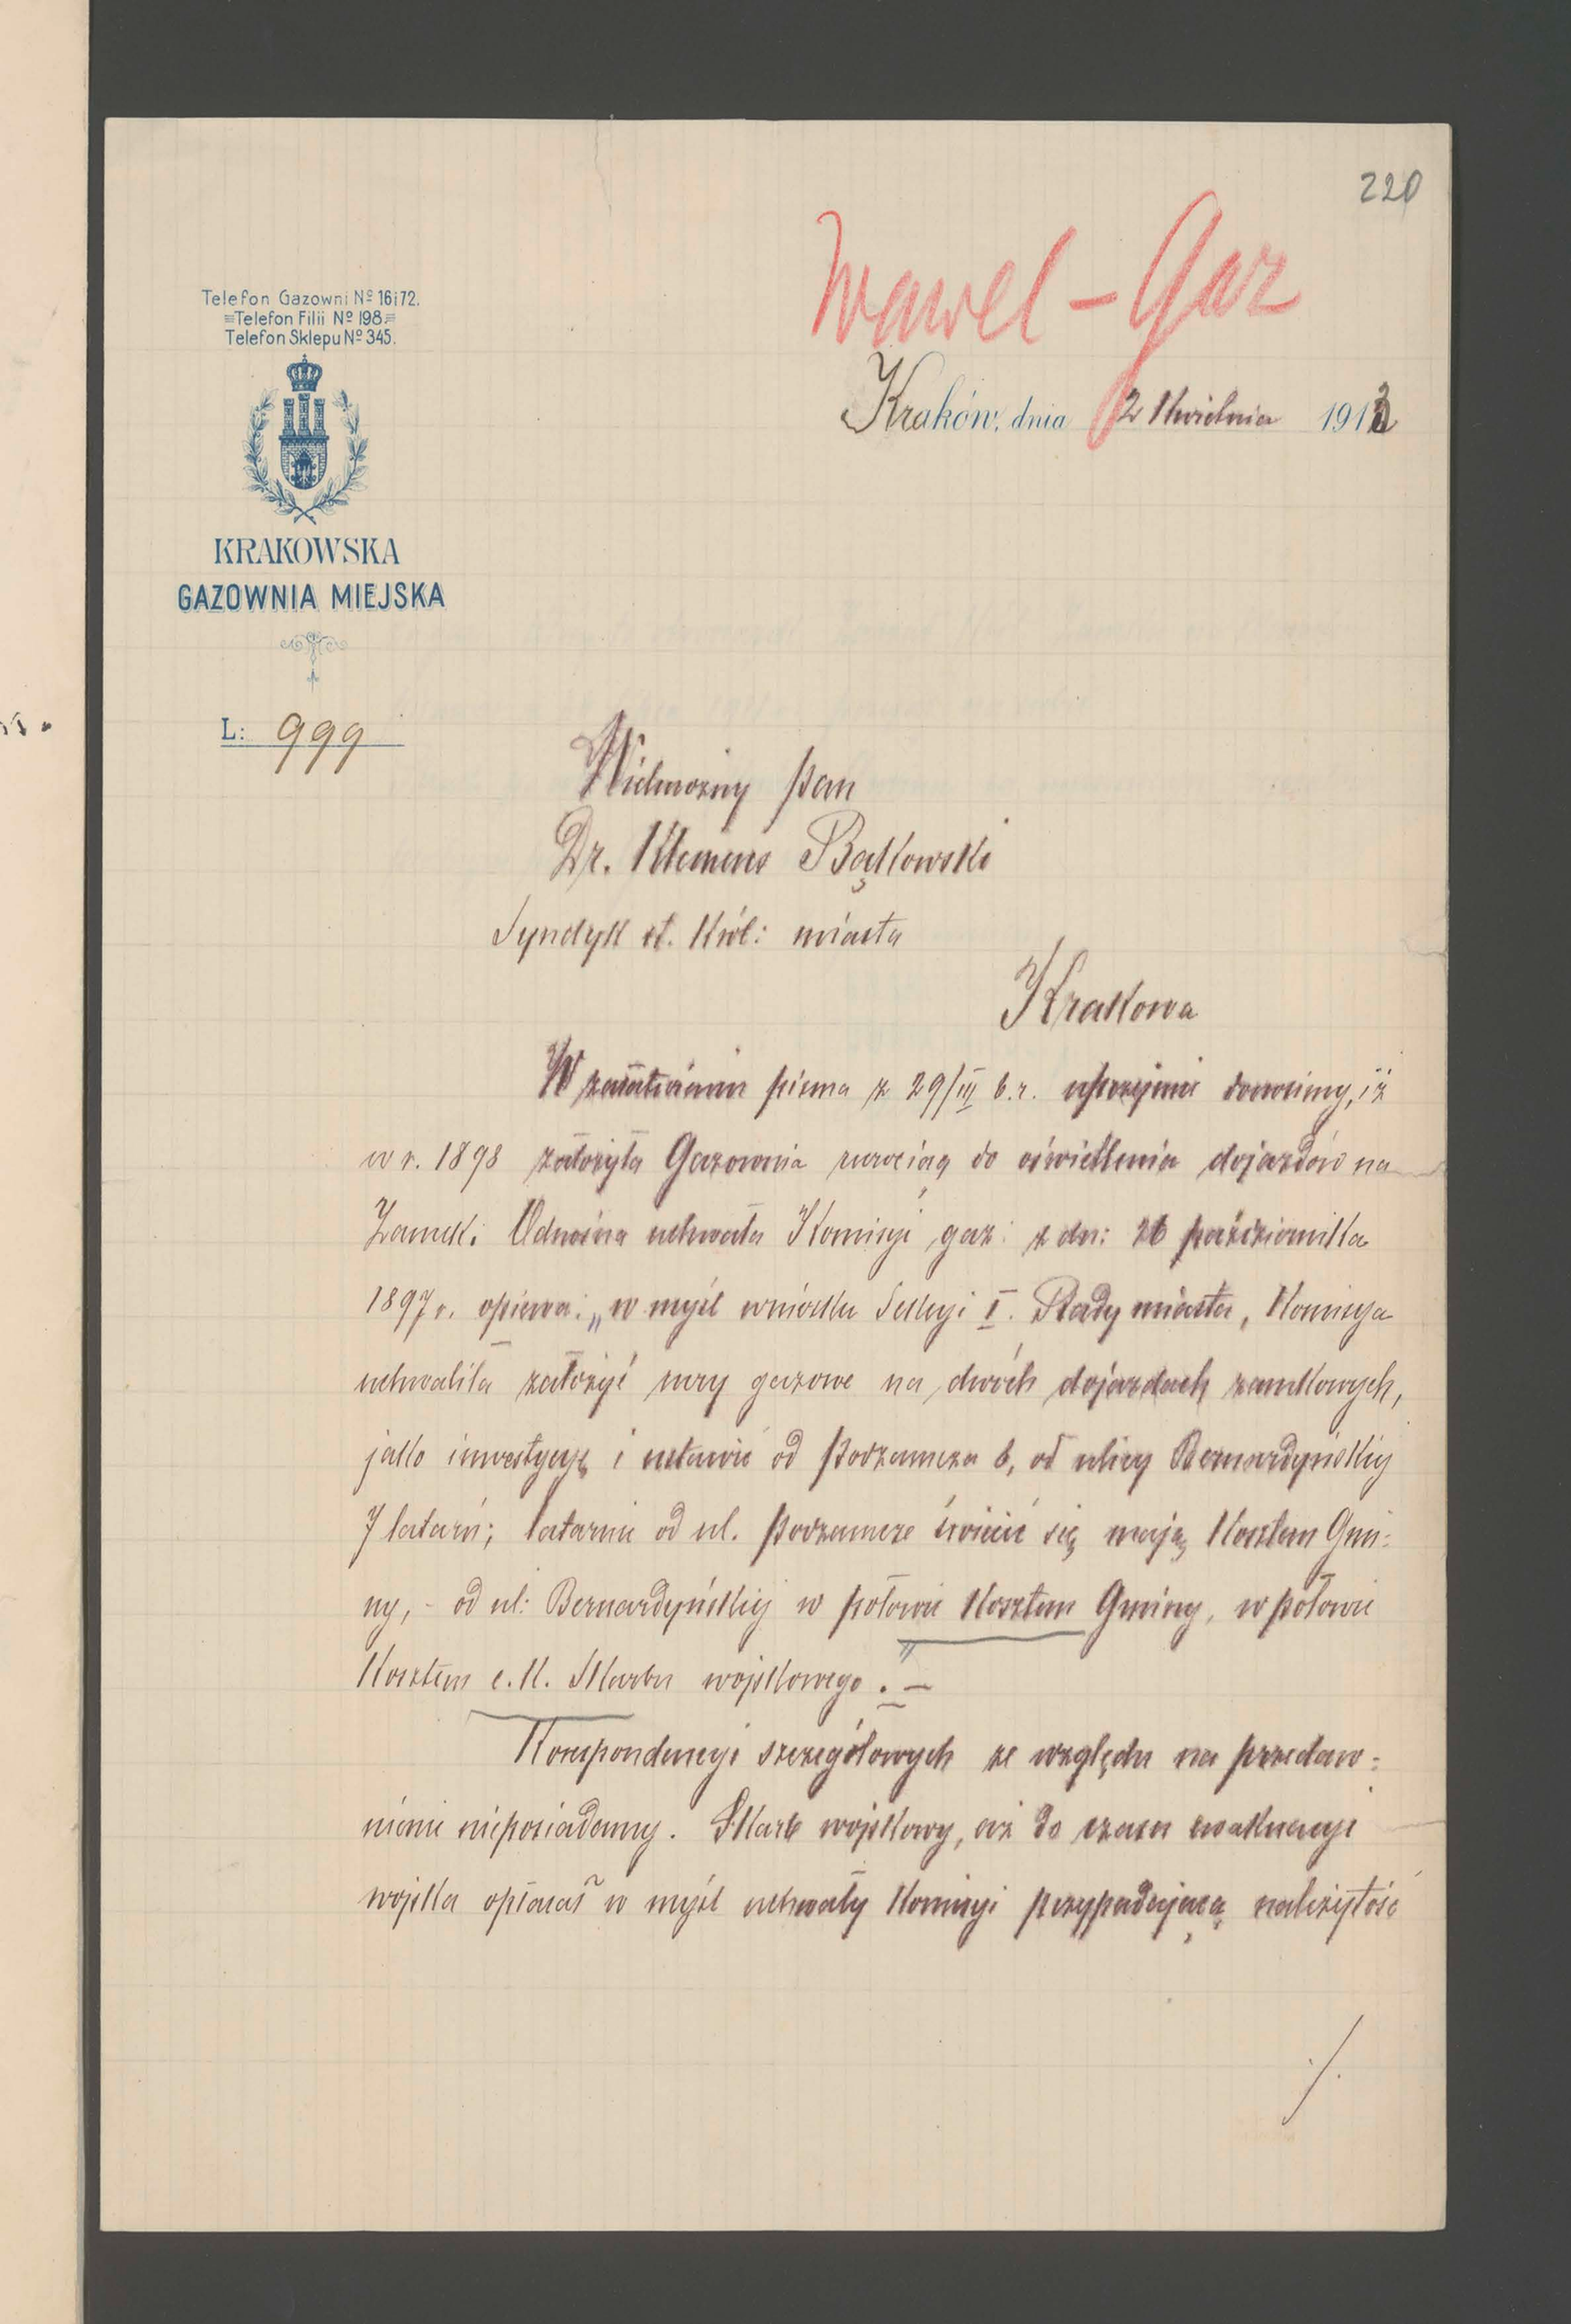 220
Wawel - Gaz
Telefon Gazowni Nº 16 i 72.
Telefon Filii Nº 198.
Telefon Sklepu Nº 345.
KRAKOWSKA
GAZOWNIA MIEJSKA
Kraków, dnia 2 Kwietnia 1913
L: 999
Wielmożny Pan
Dr. Klemens Bąkowski
Syndyk st. Król: miasta
Krakowa
W załatwieniu pisma z 29/III b.r. uprzejmie donosimy, iż
w r. 1898 założyła Gazownia rurociąg do oświetlenia dojazdów na
Zamek. Odnośna uchwała Komisyi gaz: z dn: 26 października
1897 r. opiewa: „w myśl wniosku Sekcyi I. Rady miasta, Komisya
uchwaliła założyć rury gazowe na dwóch dojazdach zamkowych,
jako inwestycyę i ustawić od Podzamcza 6, od ulicy Bernardyńskiej
7 latarń; latarnie od ul. Podzamcze świecić się mają Kosztem Gmi:
ny, - od ul: Bernardyńskiej w połowie Kosztem Gminy, w połowie
Kosztem c. k. Skarbu wojskowego". -
Korespondencyi szczegółowych ze względu na przedaw:
nienie nieposiadamy. Skarb wojskowy, aż do czasu ewakuacyi
wojska opłacał w myśl uchwały Komisyi przypadającą należytość
./.